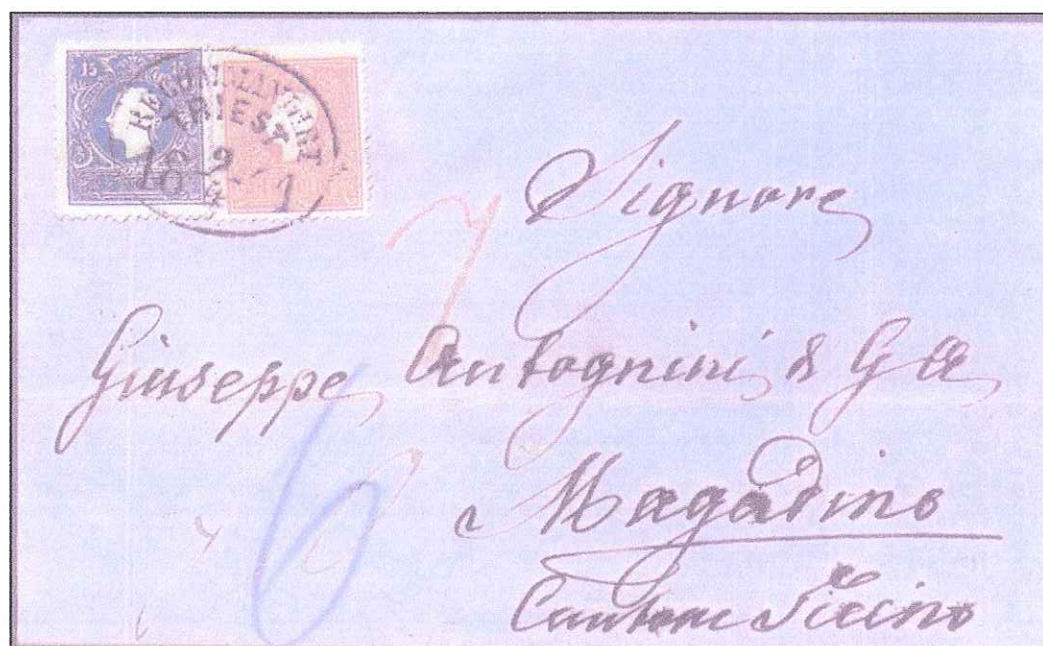 15
RECOMMANDIRT
TRIEST
Signore
Giuseppe Antognini & Co
Magadino
Cantone Ticino